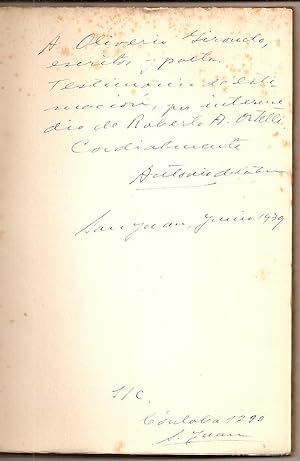 A Oliverio Girondo,
escritor y poeta.
Testimonio de esti-
mación, por interme-
dio de Roberto A. Ortelli.
Cordialmente
Antonio de la
San Juan, Junio 1939
S/C.
Córdoba 1290
S. Juan